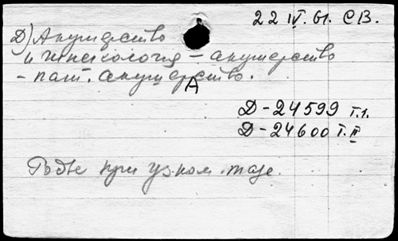 22 IV. 61. СВ.
Д) Акушерство
и гинекология – акушерство
– пат. акушерство.
А
Д-24599 Т.1.
Д-24600 Т.II
Роды при узком тазе.